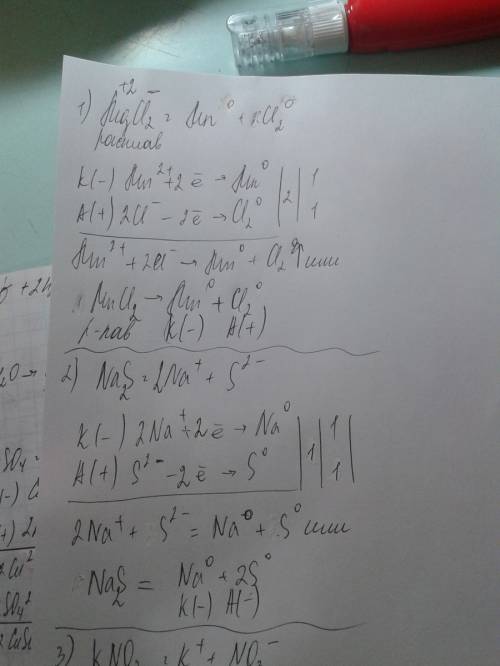 1) MgCl₂ = Mn⁰ + Cl₂⁰
расплав
K(-) Mn²⁺ + 2ē → Mn⁰ | 2 | 1
A(+) 2Cl⁻ - 2ē → Cl₂⁰ | 1
Mn²⁺ + 2Cl⁻ → Mn⁰ + Cl₂⁰↑ или
MnCl₂ → Mn⁰ + Cl₂⁰
р-лав K(-) A(+)
2) Na₂S = 2Na⁺ + S²⁻
K(-) 2Na⁺ + 2ē → Na⁰ | 1 | 1
A(+) S²⁻ - 2ē → S⁰ | 1
2Na⁺ + S²⁻ = Na⁰ + S⁰ или
Na₂S = Na⁰ + 2S⁰
K(-) A(-)
3) KNO₃ = K⁺ + NO₃⁻